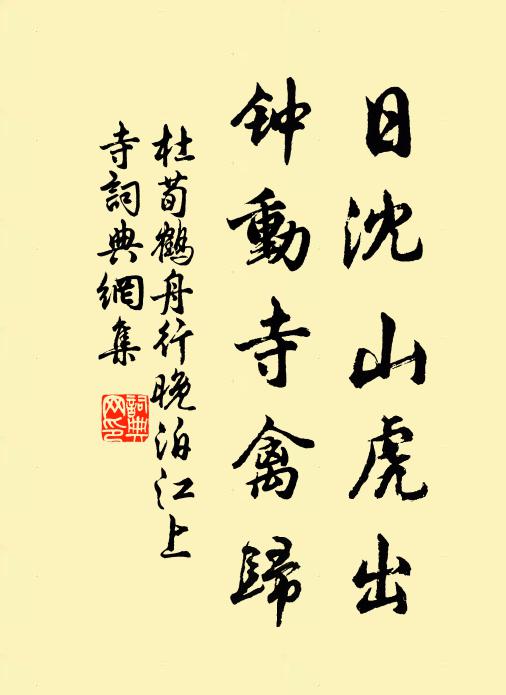 日沈山虎出
钟動寺禽歸
杜荀鶴舟行晚泊江上
寺詞典網集
詞典網印